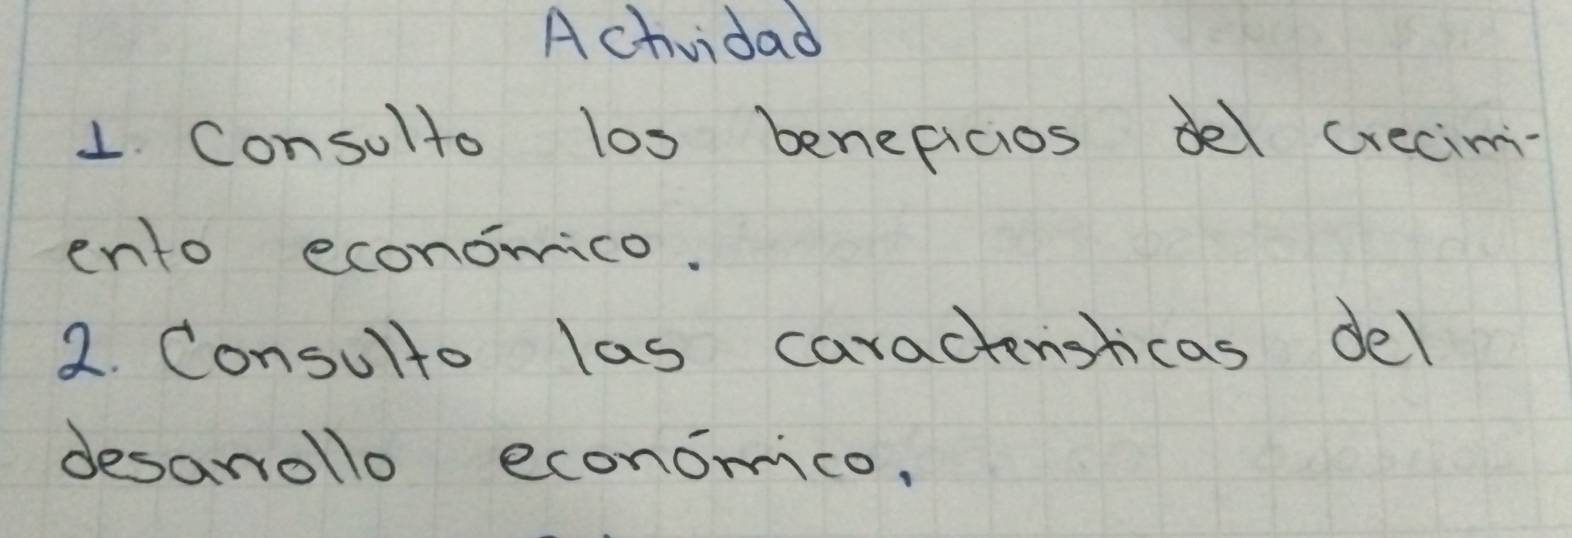 Actividad
1. Consulto los beneficios del crecimi-
ento económico.
2. Consulto las características del
desarrollo económico.